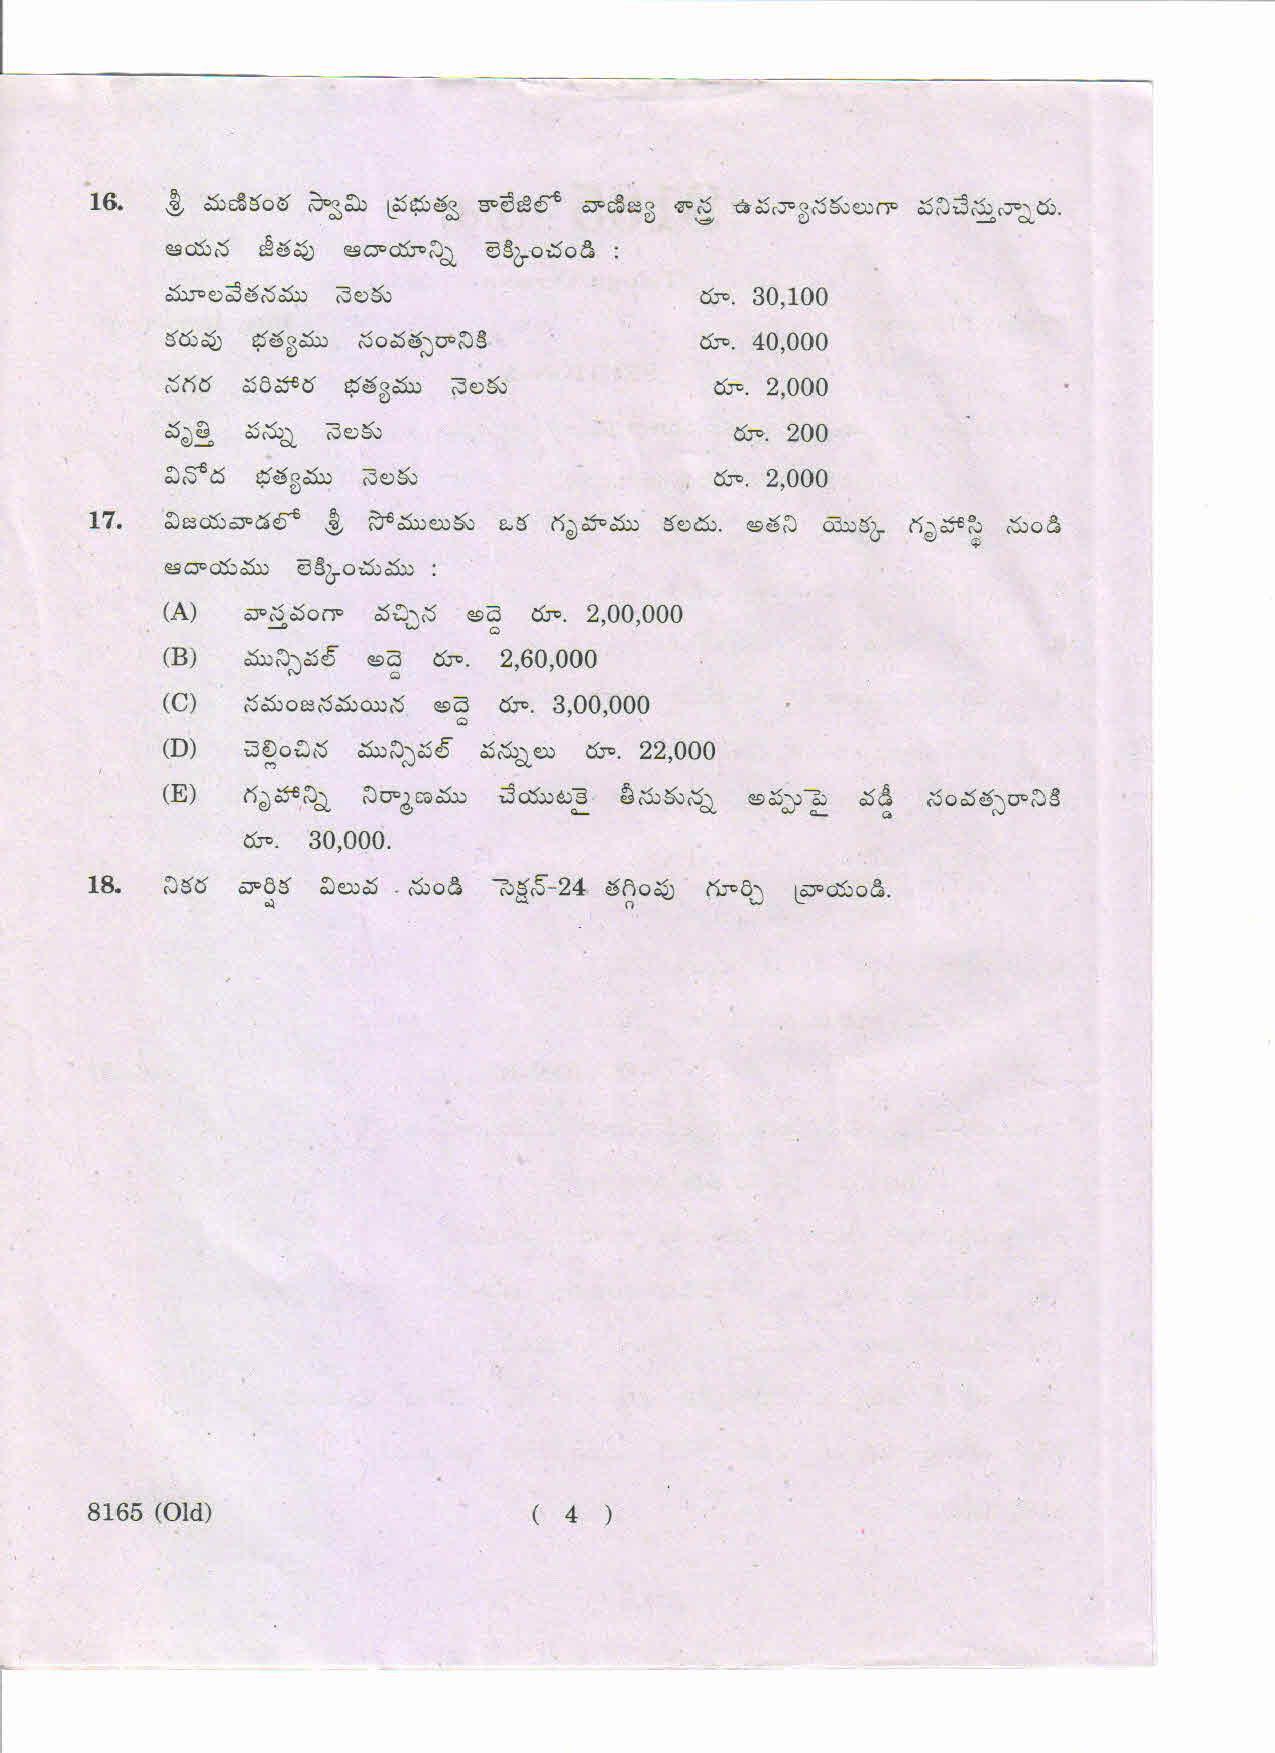 16. శ్రీ మణికంఠ స్వామి ప్రభుత్వ కాలేజిలో వాణిజ్య శాస్త్ర ఉపన్యాసకులుగా పనిచేస్తున్నారు.
ఆయన జీతపు ఆదాయాన్ని లెక్కించండి :
మూలవేతనము నెలకు రూ. 30,100
కరువు భత్యము సంవత్సరానికి రూ. 40,000
నగర పరిహార భత్యము నెలకు రూ. 2,000
వృత్తి పన్ను నెలకు రూ. 200
వినోద భత్యము నెలకు రూ. 2,000
17. విజయవాడలో శ్రీ సోములుకు ఒక గృహము కలదు. అతని యొక్క గృహాస్థి నుండి
ఆదాయము లెక్కించుము :
(A) వాస్తవంగా వచ్చిన అద్దె రూ. 2,00,000
(B) మున్సిపల్ అద్దె రూ. 2,60,000
(C) సమంజసమయిన అద్దె రూ. 3,00,000
(D) చెల్లించిన మున్సిపల్ పన్నులు రూ. 22,000
(E) గృహాన్ని నిర్మాణము చేయుటకై తీసుకున్న అప్పుపై వడ్డీ సంవత్సరానికి
రూ. 30,000.
18. నికర వార్షిక విలువ నుండి సెక్షన్-24 తగ్గింపు గూర్చి వ్రాయండి.
8165 (Old) ( 4 )